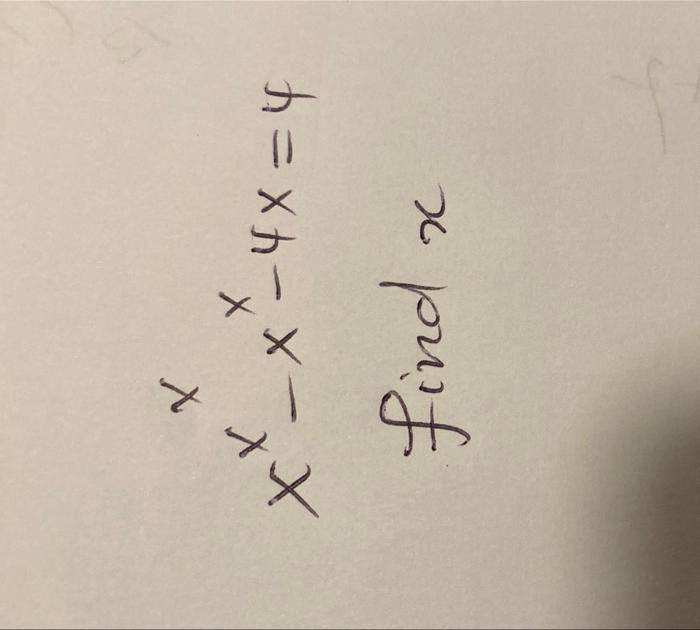 x^x^x - x^x - 4x = 4
find x